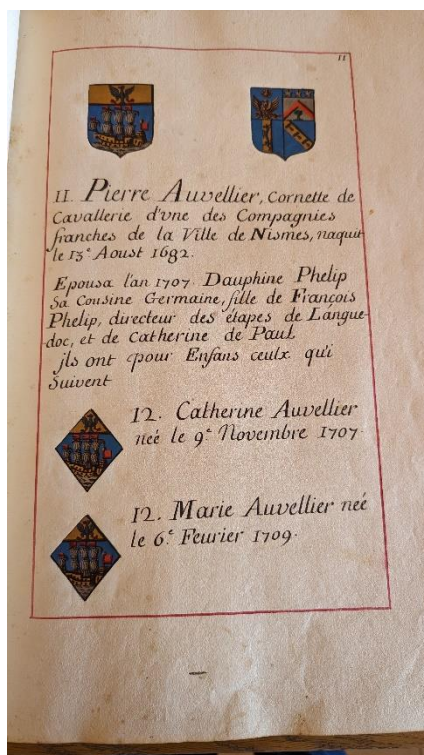 11
11. Pierre Auvellier, Cornette de
Cavallerie d'vne des Compagnies
franches de la Ville de Nismes, naquit
le 13.e Aoust 1682.
Epousa l'an 1707. Dauphine Phelip
Sa Cousine Germaine, fille de François
Phelip, directeur des étapes de Langue-
doc, et de Catherine de Paul
jls ont pour Enfans ceulx qui
Suivent
12. Catherine Auvellier
neé le 9.e Novembre 1707
12. Marie Auvellier neé
le 6.e Feurier 1709.